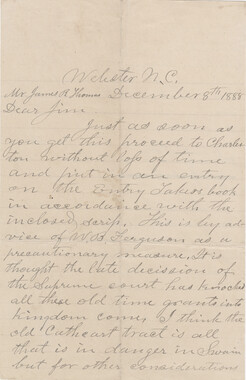 Webster N.C.
Mr James R Thomas December 8th 1888
Dear Jim
Just as soon as
you get this proceed to Charles
ton without loss of time
and put in an entry
on the Entry Takers book
in accordance with the
inclosed scrip. This is by ad
vice of W.B. Ferguson as a
precautionary measure. It is
thought the late decission of
the Supreme court has knocked
all these old time grants into
kingdom come. I think the
old Cathcart tract is all
that is in danger in Swain
but for other considerations